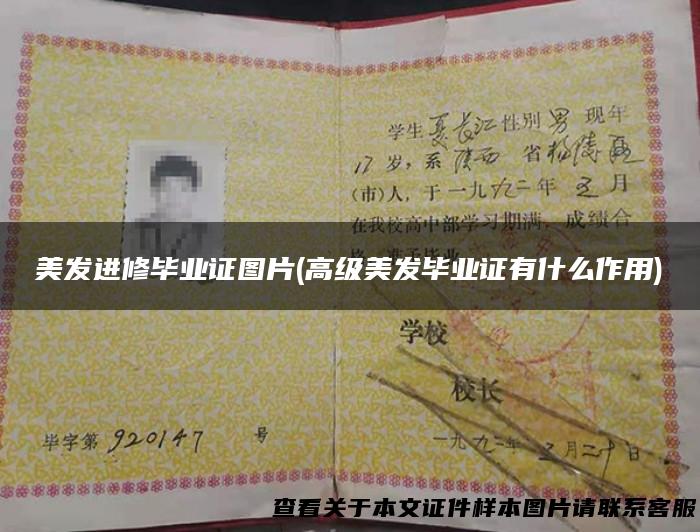 学生夏长江性别男 现年
17岁，系陕西 省杨陵区
(市)人，于一九九二年 五月
在我校高中部学习期满，成绩合
格，准予毕业
美发进修毕业证图片(高级美发毕业证有什么作用)
学校
校长
毕字第 920147 号
一九九二年 五月二十日
查看关于本文证件样本图片请联系客服